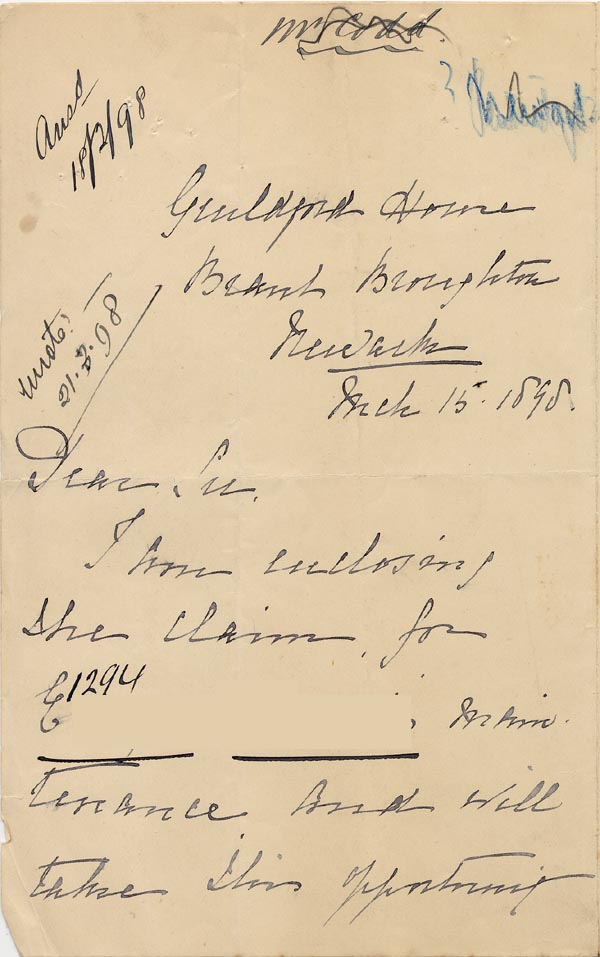 Mr Codd.
Ansd
18/3/98
Guildford House
Brant Broughton
Newark
Mch 15. 1898.
wrote
21.3.98
Dear Sir,
I am enclosing
the claim for
E1294
, main-
tenance and will
take this opportunity